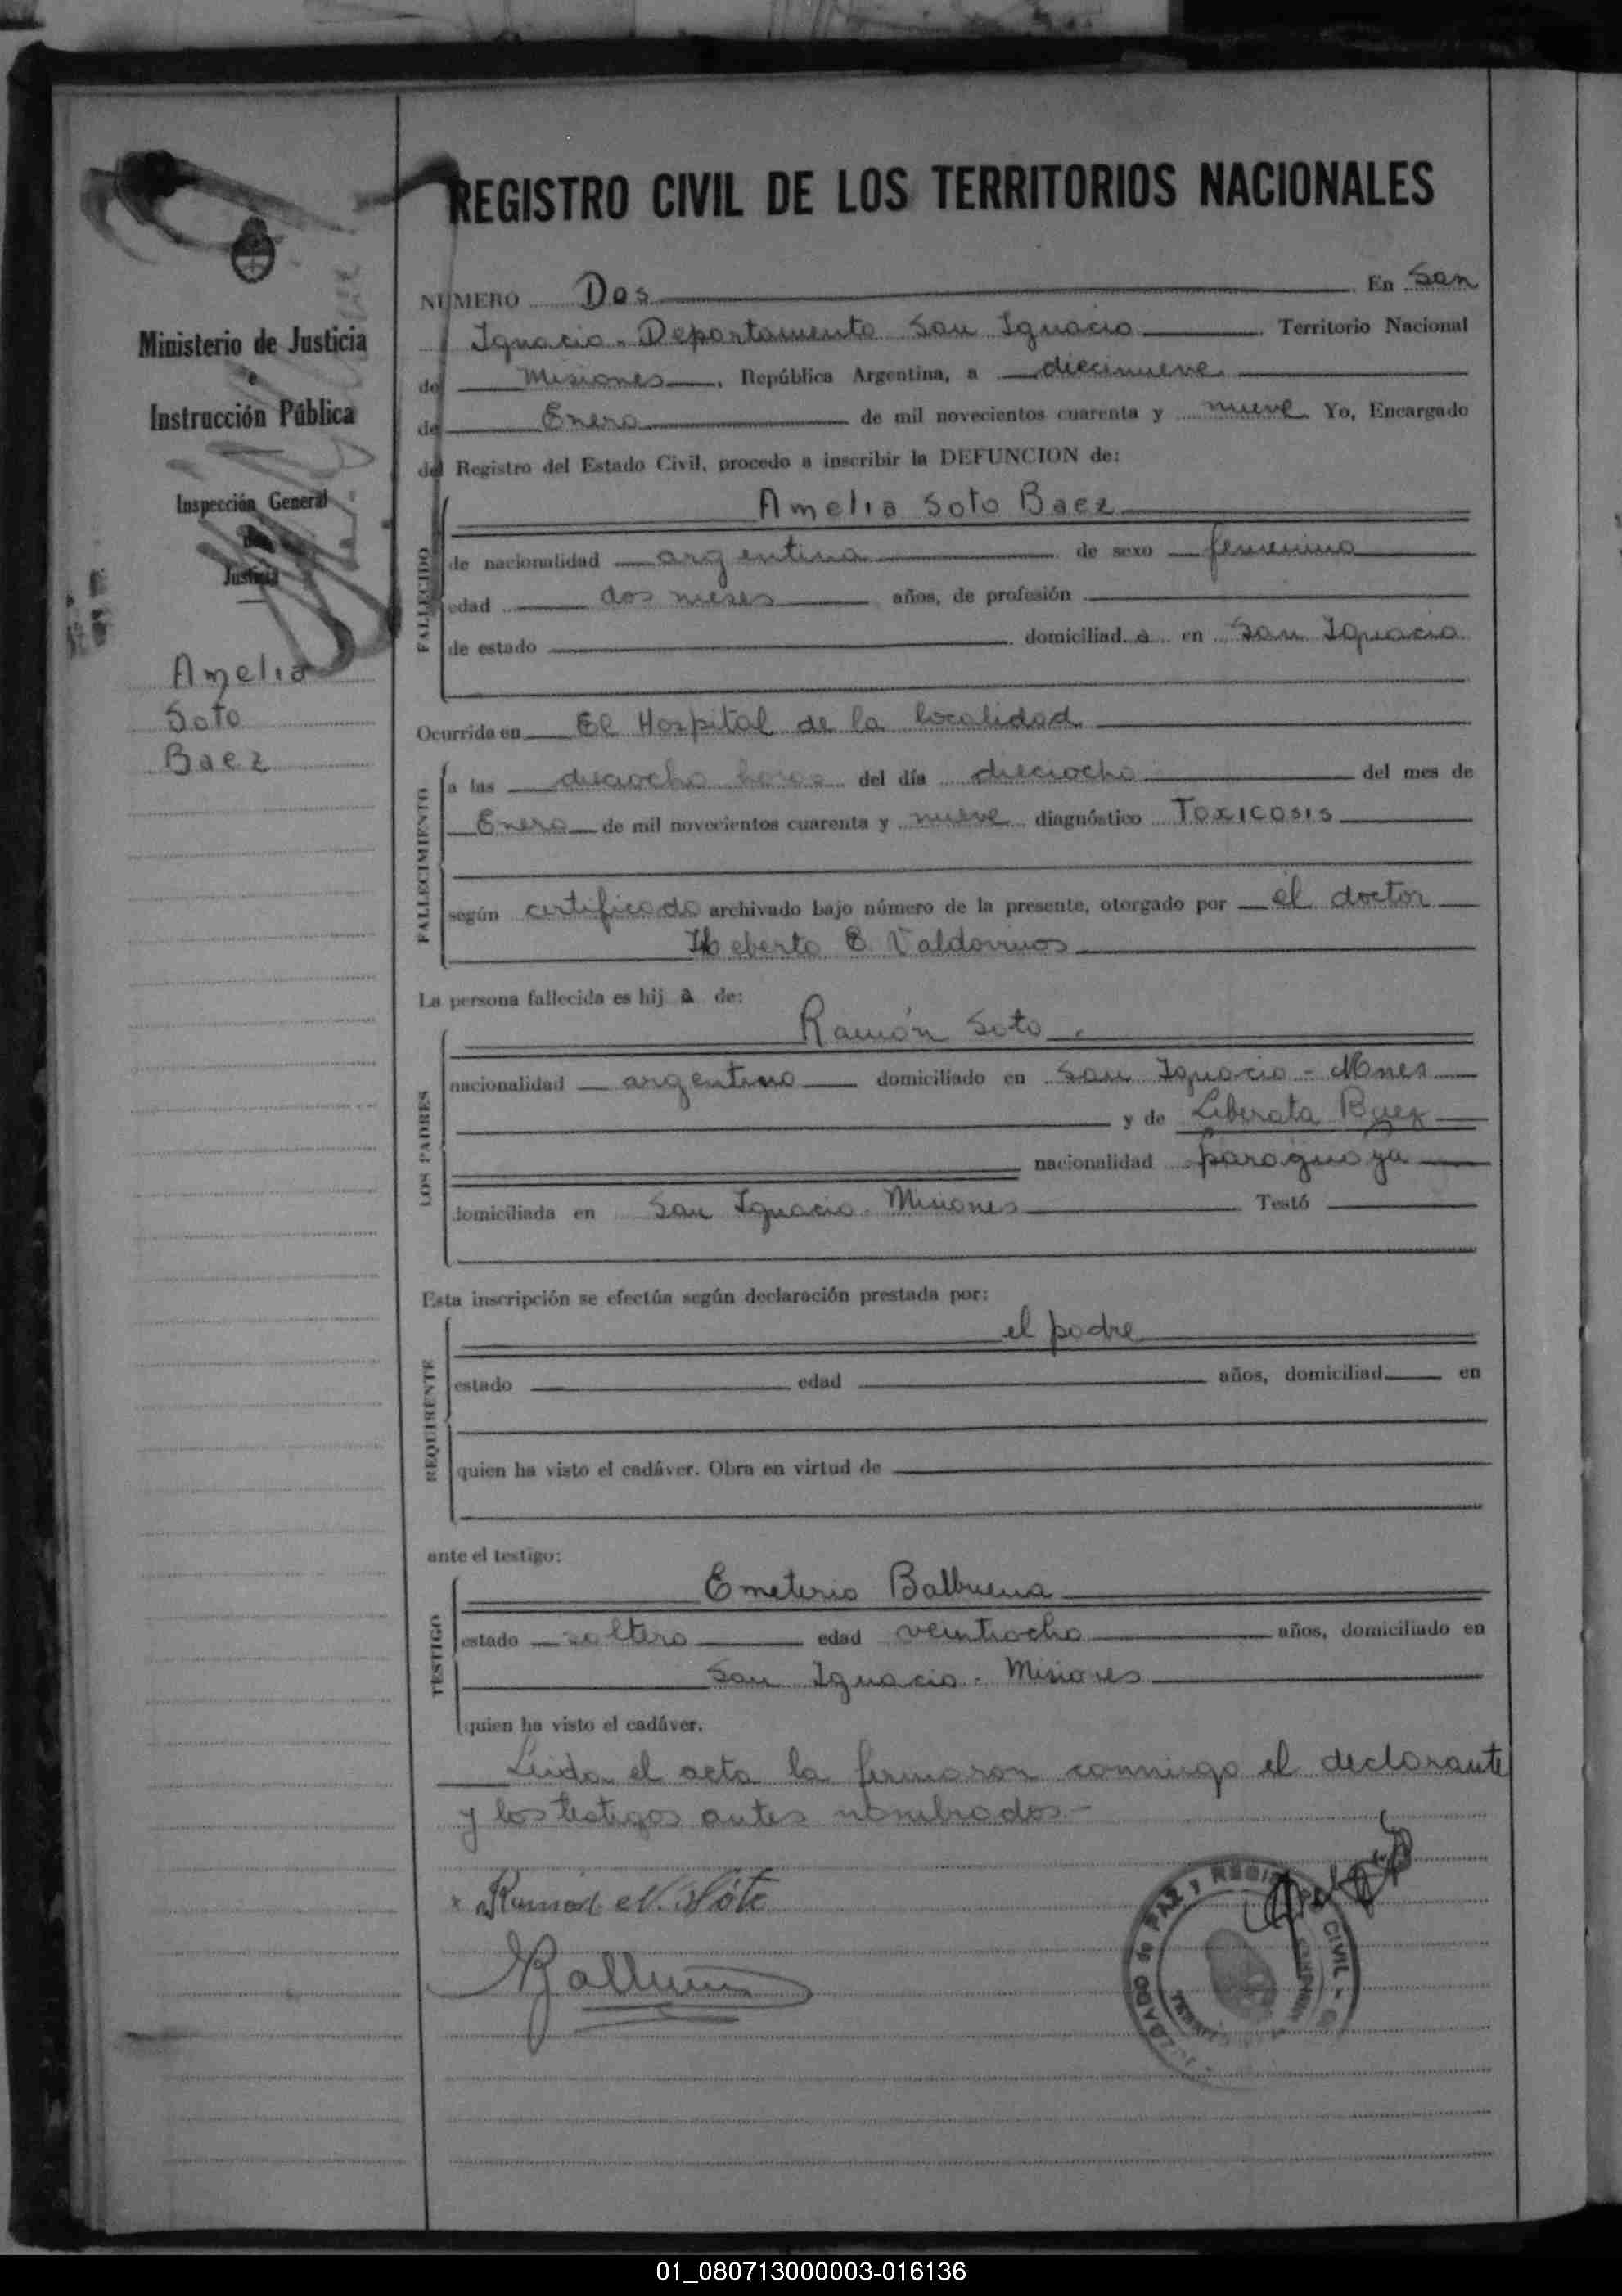 REGISTRO CIVIL DE LOS TERRITORIOS NACIONALES
Ministerio de Justicia
e
Instrucción Pública
Inspección General
de
Justicia
Amelia
Soto
Baez
NUMERO Dos En San
Ignacio. Departamento San Ignacio Territorio Nacional
de Misiones, República Argentina, a diecinueve
de Enero de mil novecientos cuarenta y nueve Yo, Encargado
del Registro del Estado Civil, procedo a inscribir la DEFUNCION de:
FALLECIDO
Amelia Soto Baez
de nacionalidad argentina de sexo femenino
edad dos meses años, de profesión
de estado domiciliad a en San Ignacio
Ocurrida en El Hospital de la localidad
FALLECIMIENTO
a las dieciocho horas del día dieciocho del mes de
Enero de mil novecientos cuarenta y nueve diagnóstico Toxicosis
según certificado archivado bajo número de la presente, otorgado por el doctor
Heberto E. Valdovinos
La persona fallecida es hij a de:
LOS PADRES
Ramón Soto.
nacionalidad argentino domiciliado en San Ignacio - Mnes
y de Liberata Baez
nacionalidad paraguaya
domiciliada en San Ignacio. Misiones Testó
Esta inscripción se efectúa según declaración prestada por:
REQUIRENTE
el padre
estado edad años, domiciliad en
quien ha visto el cadáver. Obra en virtud de
ante el testigo:
TESTIGO
Emeterio Balbuena
estado soltero edad veintiocho años, domiciliado en
San Ignacio - Misiones
quien ha visto el cadáver.
Leida el acta la firmaron conmigo el declarante
y los testigos antes nombrados -
x Ramón N. Sóto
Balbuena
JUZGADO de PAZ y REGISTRO CIVIL
01_080713000003-016136